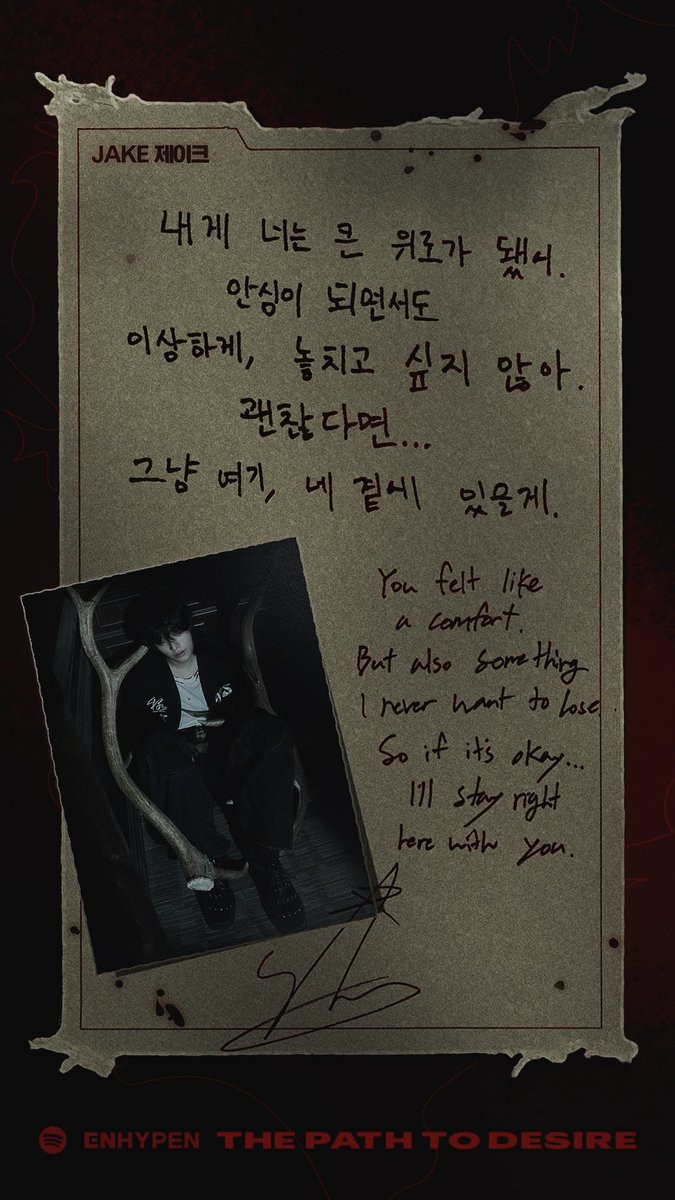 JAKE 제이크
내게 너는 큰 위로가 됐어.
안심이 되면서도
이상하게, 놓치고 싶지 않아.
괜찮다면...
그냥 여기, 네 곁에 있을게.
You felt like
a comfort.
But also something
I never want to lose.
So if it's okay...
I'll stay right
here with you.
ENHYPEN THE PATH TO DESIRE